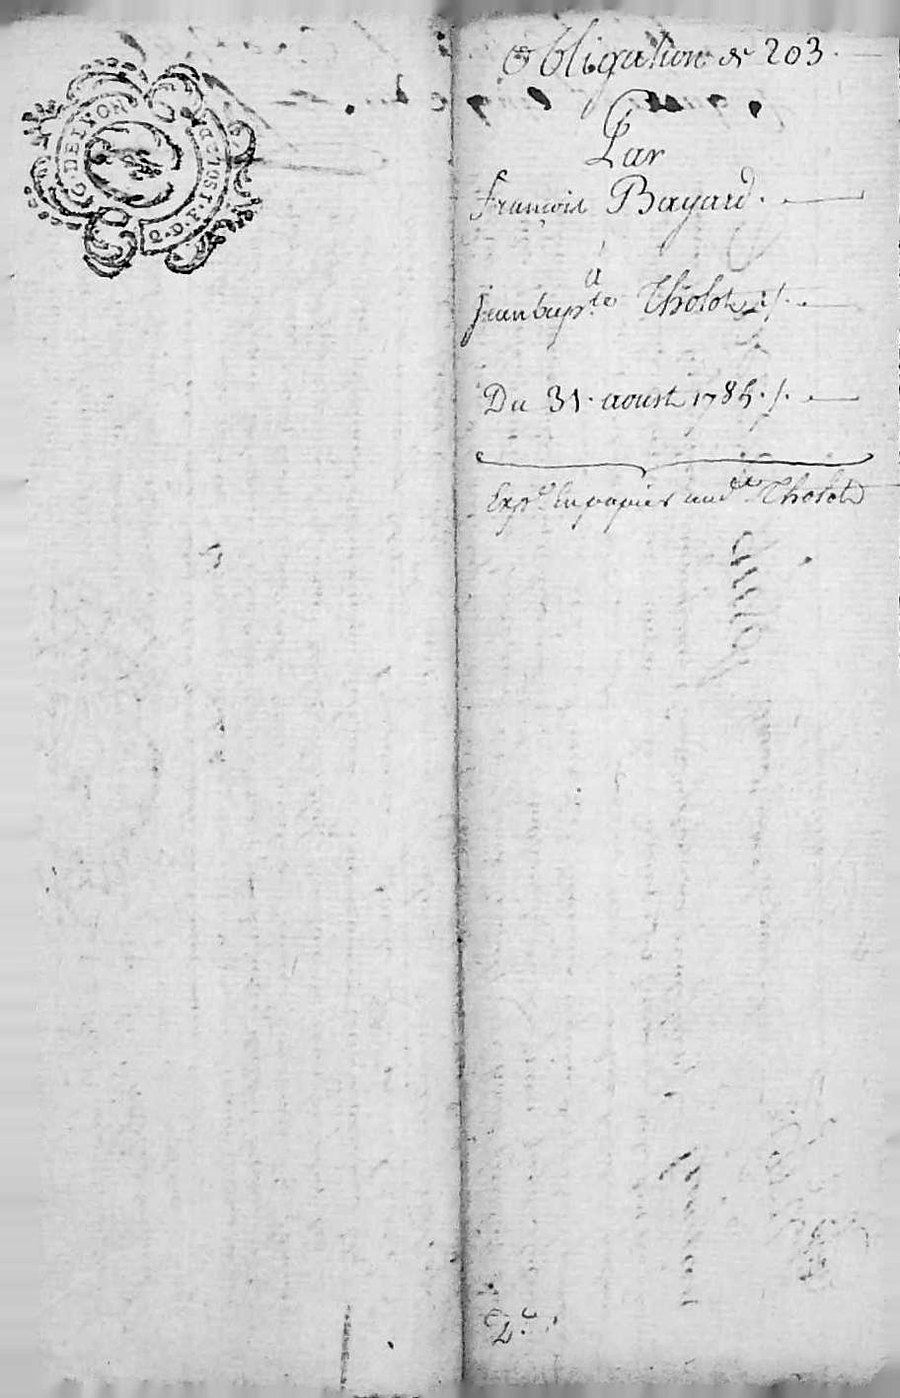 G. DE LYON
Obligation de 203
Par
françois Bayard.
à
Jean bapte. Tholot
Du 31. aoust 1785.
Expé. en papier aud. Tholot
2e.